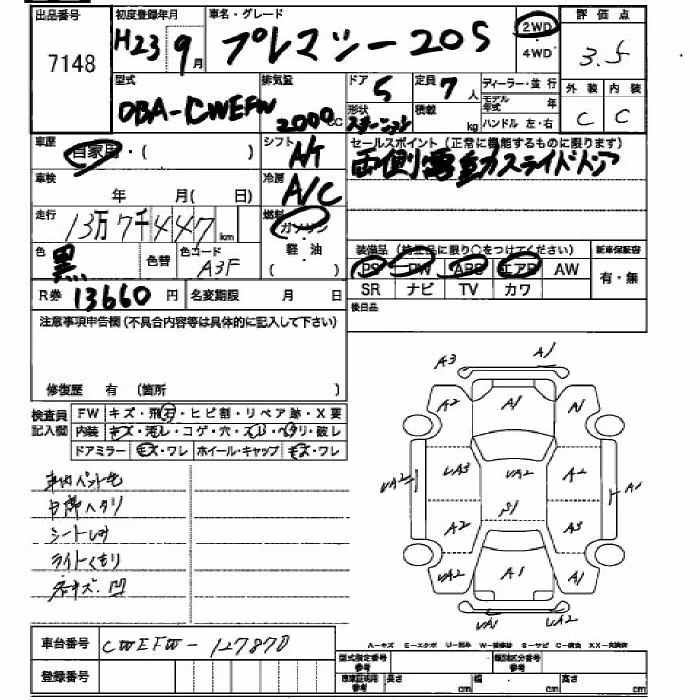 出品番号 初度登録年月 車名・グレード 2WD 評価点
7148 H23 9月 プレマシー 20S 4WD 3.5
型式 排気量 ドア 5 定員 7人 ディーラー・並行 外装 内装
DBA-CWEFW 2000cc 形状 ステーション 積載 kg モデル年式 年 C C
ハンドル 左・右
車歴 自家用・( ) シフト A/T セールスポイント(正常に機能するものに限ります)
車検 年 月( 日) 冷房 A/C 両側電動スライドドア
走行 13万7千447km 燃料 ガソリン
色 黒 色替 色コード A3F 軽油 ( ) 装備品(純正品に限り○をつけてください) 新車保証書
PS PW ABS エアB AW 有・無
R券 13660円 名変期限 月 日 SR ナビ TV カワ
注意事項申告欄(不具合内容等は具体的に記入して下さい) 後日品
修復歴 有 (箇所 )
検査員記入欄 FW キズ・飛石・ヒビ割・リペア跡・X要
内装 キズ・汚レ・コゲ・穴・スレ・ヘタリ・破レ
ドアミラー キズ・ワレ ホイール・キャップ キズ・ワレ
A3 A1
A2 A1
UA2 UA3 UA2 A2 A1
A2 P1 A3
UA2 A1 A1
UA1 UA2
車内ペット毛
シートしみ
ライトくもり
各キズ.凹
A-キズ E-エクボ U-凹み W-補修跡 S-サビ C-腐食 XX-交換済
車台番号 CWEFW-127870
登録番号
型式指定番号 参考 類別区分番号 参考
車庫証明用 参考 長さ cm 幅 cm 高さ cm